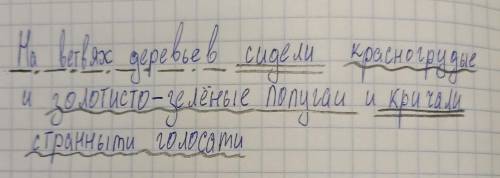 На ветвях деревьев сидели красногрудые
и золотисто-зелёные попугаи и кричали
странныти голосати